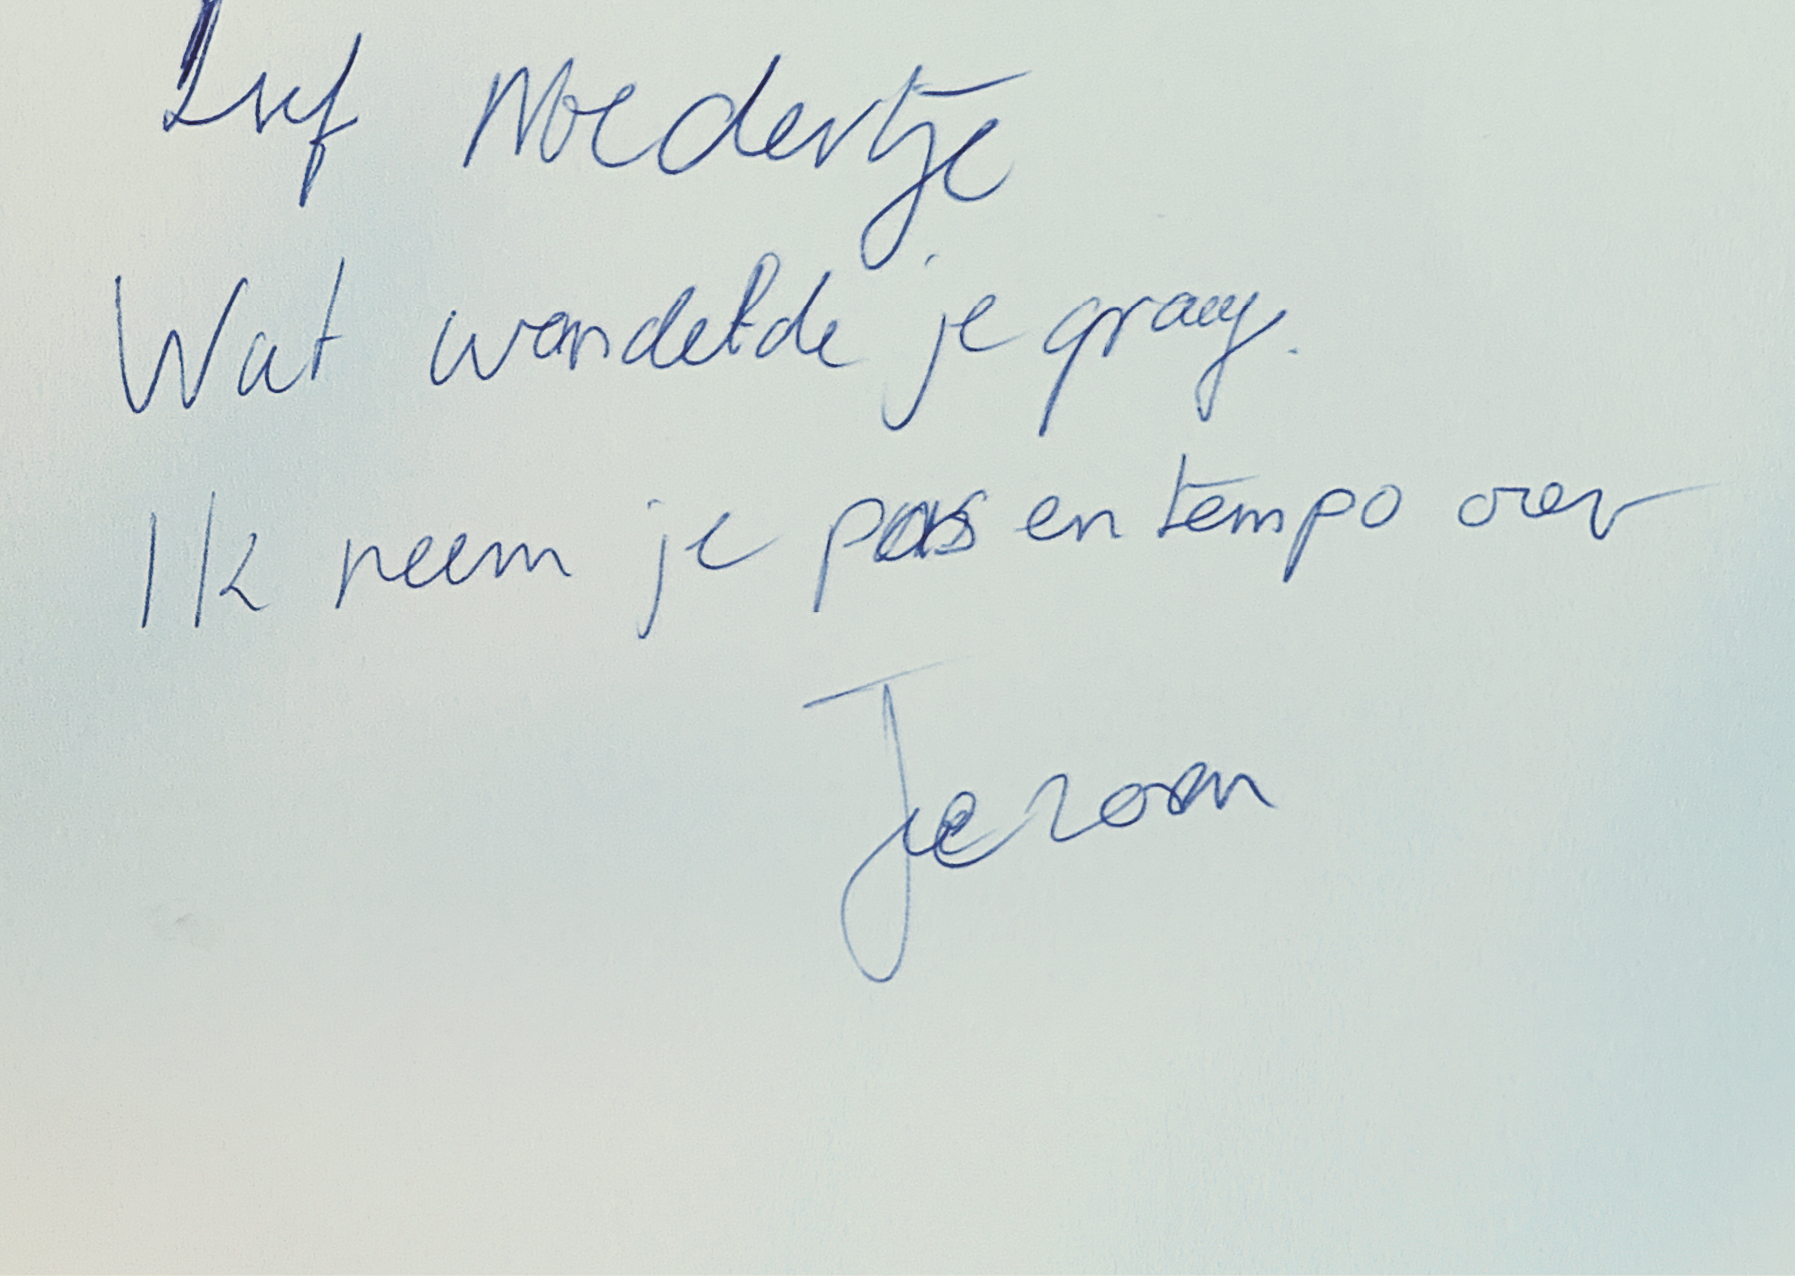 Lief Moedertje
Wat wandelde je graag.
Ik neem je pas en tempo over
Jeroen